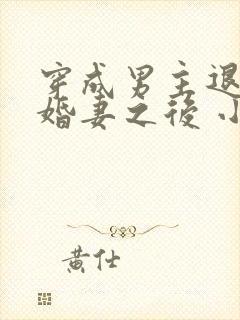 穿成男主退
婚妻之後
黄仕